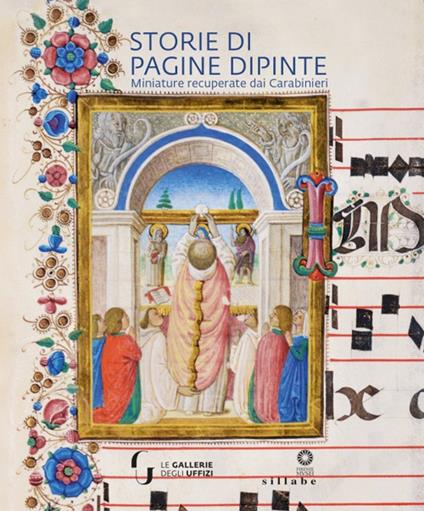 STORIE DI
PAGINE DIPINTE
Miniature recuperate dai Carabinieri
I
LE GALLERIE
DEGLI UFFIZI
FIRENZE
MUSEI
sillabe